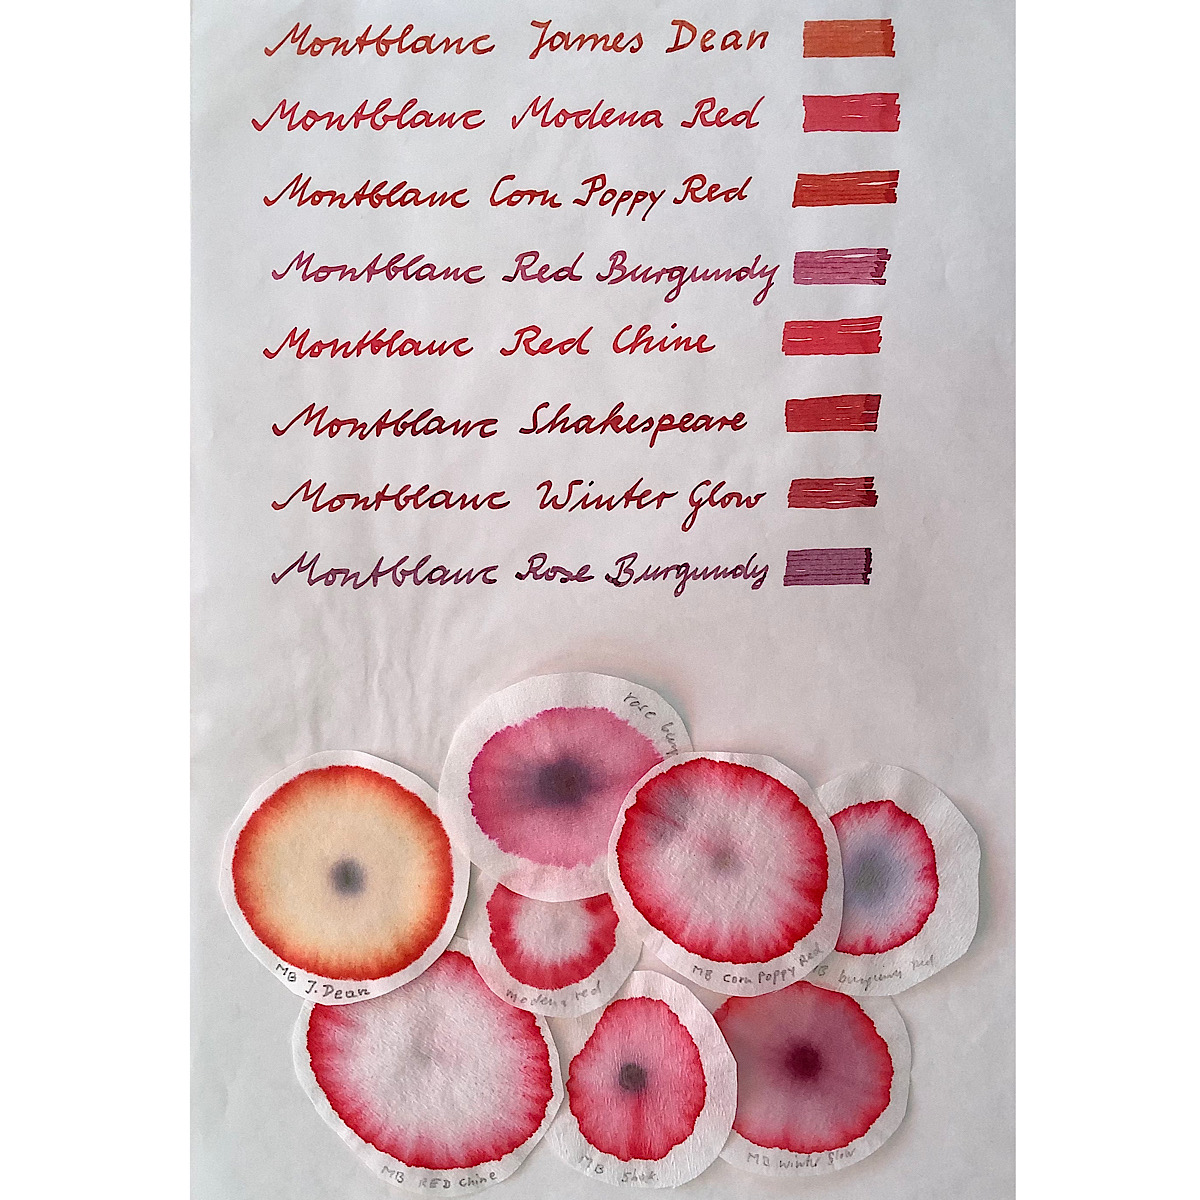 Montblanc James Dean
Montblanc Modena Red
Montblanc Corn Poppy Red
Montblanc Red Burgundy
Montblanc Red Chine
Montblanc Shakespeare
Montblanc Winter Glow
Montblanc Rose Burgundy
rose
MB J. Dean
modena red
MB Corn Poppy Red
MB burgundy red
MB RED Chine
MB Shak.
MB Winter Glow